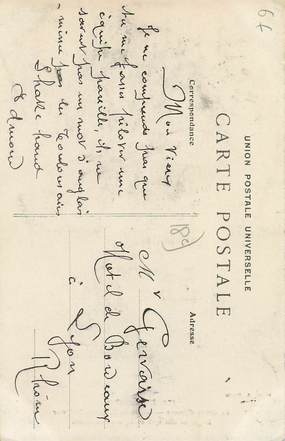 64
UNION POSTALE UNIVERSELLE
CARTE POSTALE
Correspondance
Adresse
Mon Vieux
Je ne comprends pas que
tu me fasses piloter une
équipe pareille, ils ne
savent pas un mot d'anglais
même pas les Toulousains
Shake hand
Edmond
189
Mr Gervaise
Hotel de Bordeaux
à Lyon
Rhône